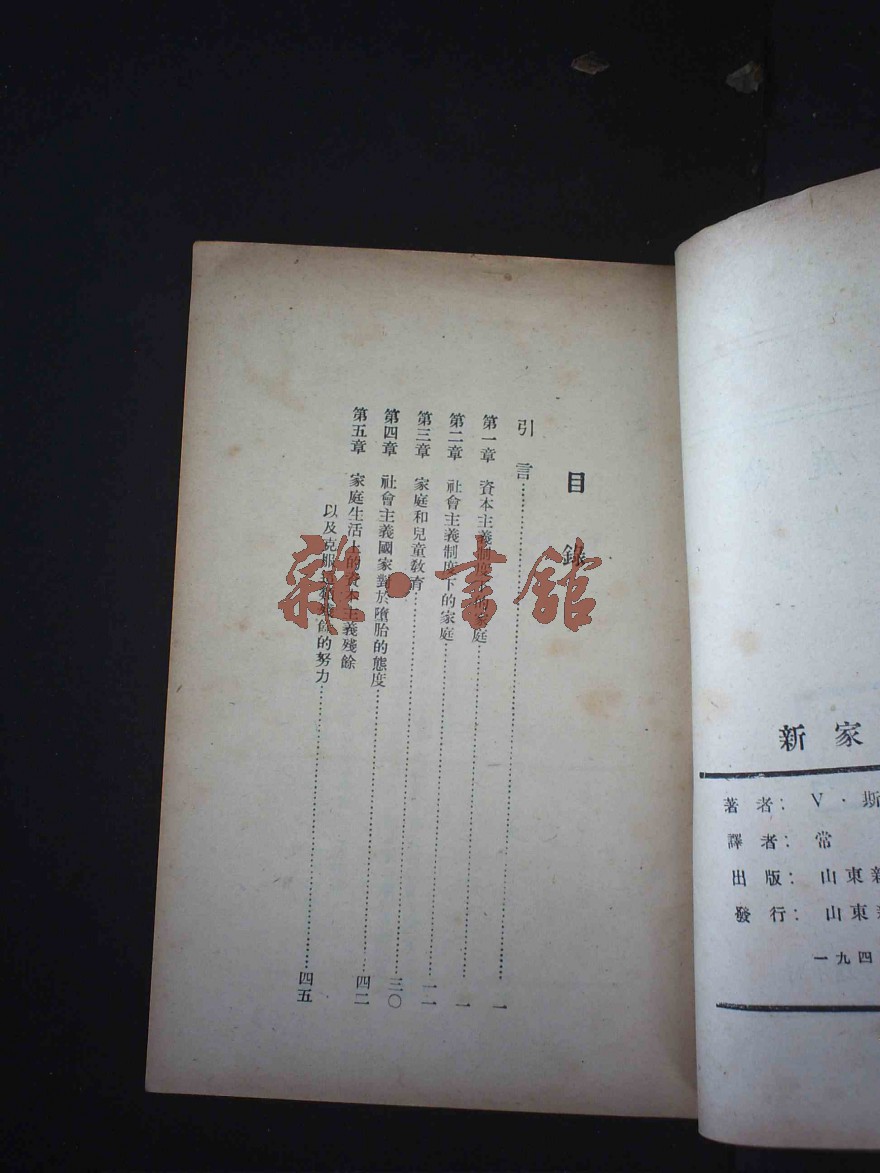 目錄
引言……一
第一章 資本主義制度下的家庭……一
第二章 社會主義制度下的家庭……
第三章 家庭和兒童教育……三〇
第四章 社會主義國家對於墮胎的態度……四二
第五章 家庭生活上的資本主義殘餘
以及克服這種殘餘的努力……四五
雜·書館
新家
著者：V·斯
譯者：常
出版：山東新
發行：山東新
一九四